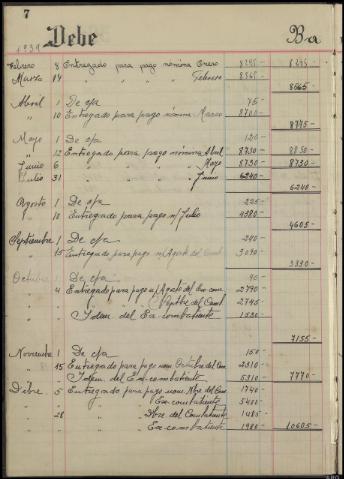 7
1939 Debe Ba
Febrero 8 Entregado para pago nómina Enero 8245- 8245-
Marzo 14 " " " " Febrero 8565-
8565-
Abril 1 De c/a 75-
" 10 Entregado para pago nómina Marzo 8700-
8775-
Mayo 1 De c/a 120-
" 12 Entregado para pago nómina Abril 8730- 8850-
Junio 6 " " " " Mayo 8730- 8730-
Julio 31 " " " " Junio 6240-
6240-
Agosto 1 De c/a 225-
" 10 Entregado para pago n/ Julio 4380-
4605-
Septiembre 1 De c/a 240-
" 15 Entregado para pago n/ Agosto del Comb 3090-
3330-
Octubre 1 De c/a 90-
" 4 Entregado para pago n/ Agosto del Ex-com 2790-
" " " " Septbre del Comb 2745-
" Idem del Ex-combatiente 1530-
7155-
Noviembre 1 De c/a 150-
" 15 Entregado para pago nom. Octubre del Com 2310-
" Idem. del Ex-combatiente 5310- 7770-
Dibre 5 Entregado para pago nom. Nbre del Com 1740-
" " " " Ex-combatiente 5400-
" 28 " " " Dbre del Combatiente 1485-
" " " " Ex-combatiente 1980- 10605-